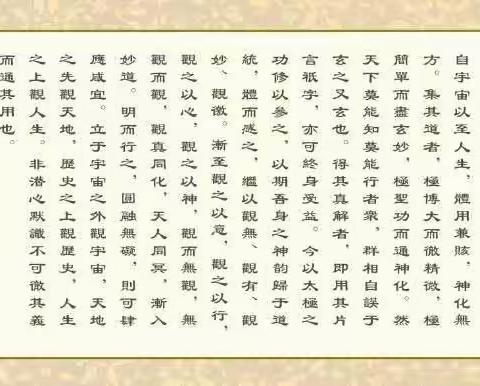 自宇宙以至人生，體用兼賅，神化無
方。集其道者，極博大而徹精微，極
簡單而盡玄妙，極聖功而通神化。然
天下莫能知莫能行者衆，群相自誤于
玄之又玄也。得其真解者，即用其片
言祇字，亦可終身受益。今以太極之
功修以參之，以期吾身之神韵歸于道
統，體而感之，繼以觀無、觀有、觀
妙、觀徼。漸至觀之以意，觀之以行，
觀之以心，觀之以神，觀而無觀，無
觀而觀，觀真同化，天人同冥，漸入
妙道。明而行之，圓融無礙，則可肆
應咸宜。立于宇宙之外觀宇宙，天地
之先觀天地，歷史之上觀歷史，人生
之上觀人生。非潜心默識不可徹其義
而通其用也。